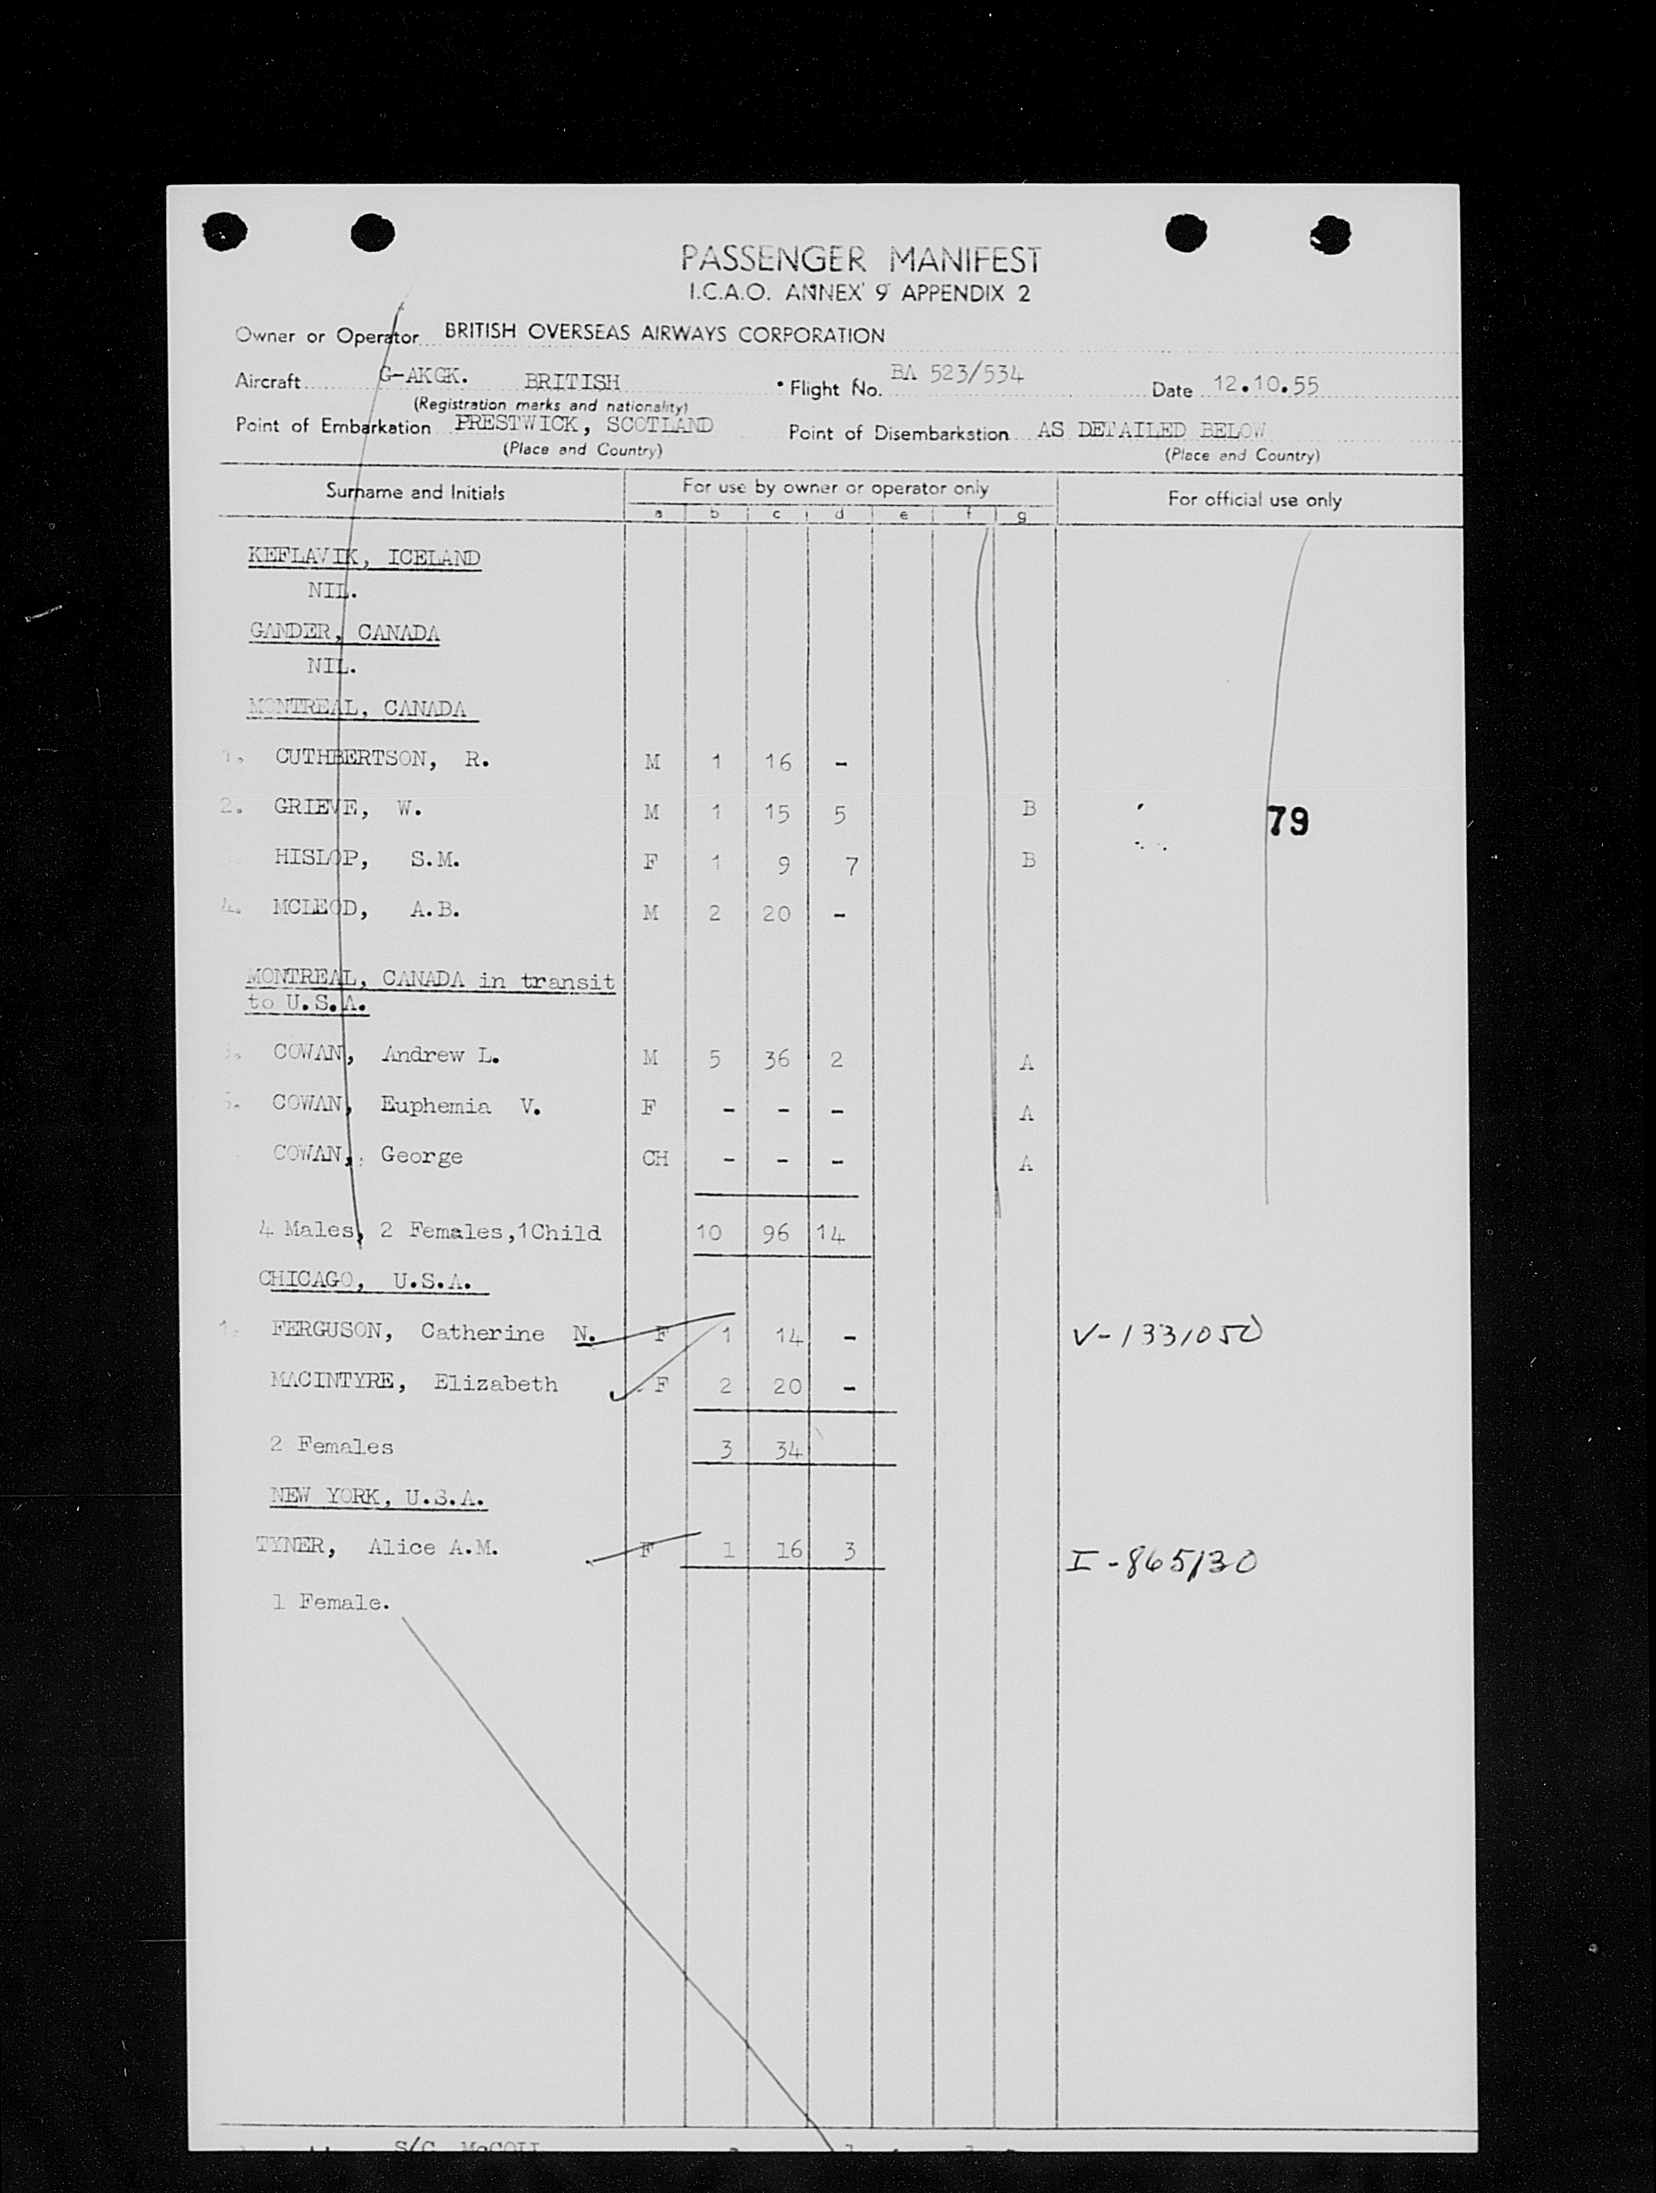 PASSENGER MANIFEST
I.C.A.O. ANNEX 9 APPENDIX 2
Owner or Operator BRITISH OVERSEAS AIRWAYS CORPORATION
Aircraft G-AKGK. BRITISH Flight No. BA 523/534 Date 12.10.55
(Registration marks and nationality)
Point of Embarkation PRESTWICK, SCOTLAND Point of Disembarkation AS DETAILED BELOW
(Place and Country) (Place and Country)
Surname and Initials For use by owner or operator only For official use only
a b c d e f g
KEFLAVIK, ICELAND
NIL.
GANDER, CANADA
NIL.
MONTREAL, CANADA
1. CUTHBERTSON, R. M 1 16 -
2. GRIEVE, W. M 1 15 5 B 79
HISLOP, S.M. F 1 9 7 B
4. MCLEOD, A.B. M 2 20 -
MONTREAL, CANADA in transit
to U.S.A.
COWAN, Andrew L. M 5 36 2 A
COWAN, Euphemia V. F - - - A
COWAN, George CH - - - A
4 Males, 2 Females, 1 Child 10 96 14
CHICAGO, U.S.A.
1. FERGUSON, Catherine N. F 1 14 - V-1331050
MACINTYRE, Elizabeth F 2 20 -
2 Females 3 34
NEW YORK, U.S.A.
TYNER, Alice A.M. F 1 16 3 I-865130
1 Female.
S/C McCOLL